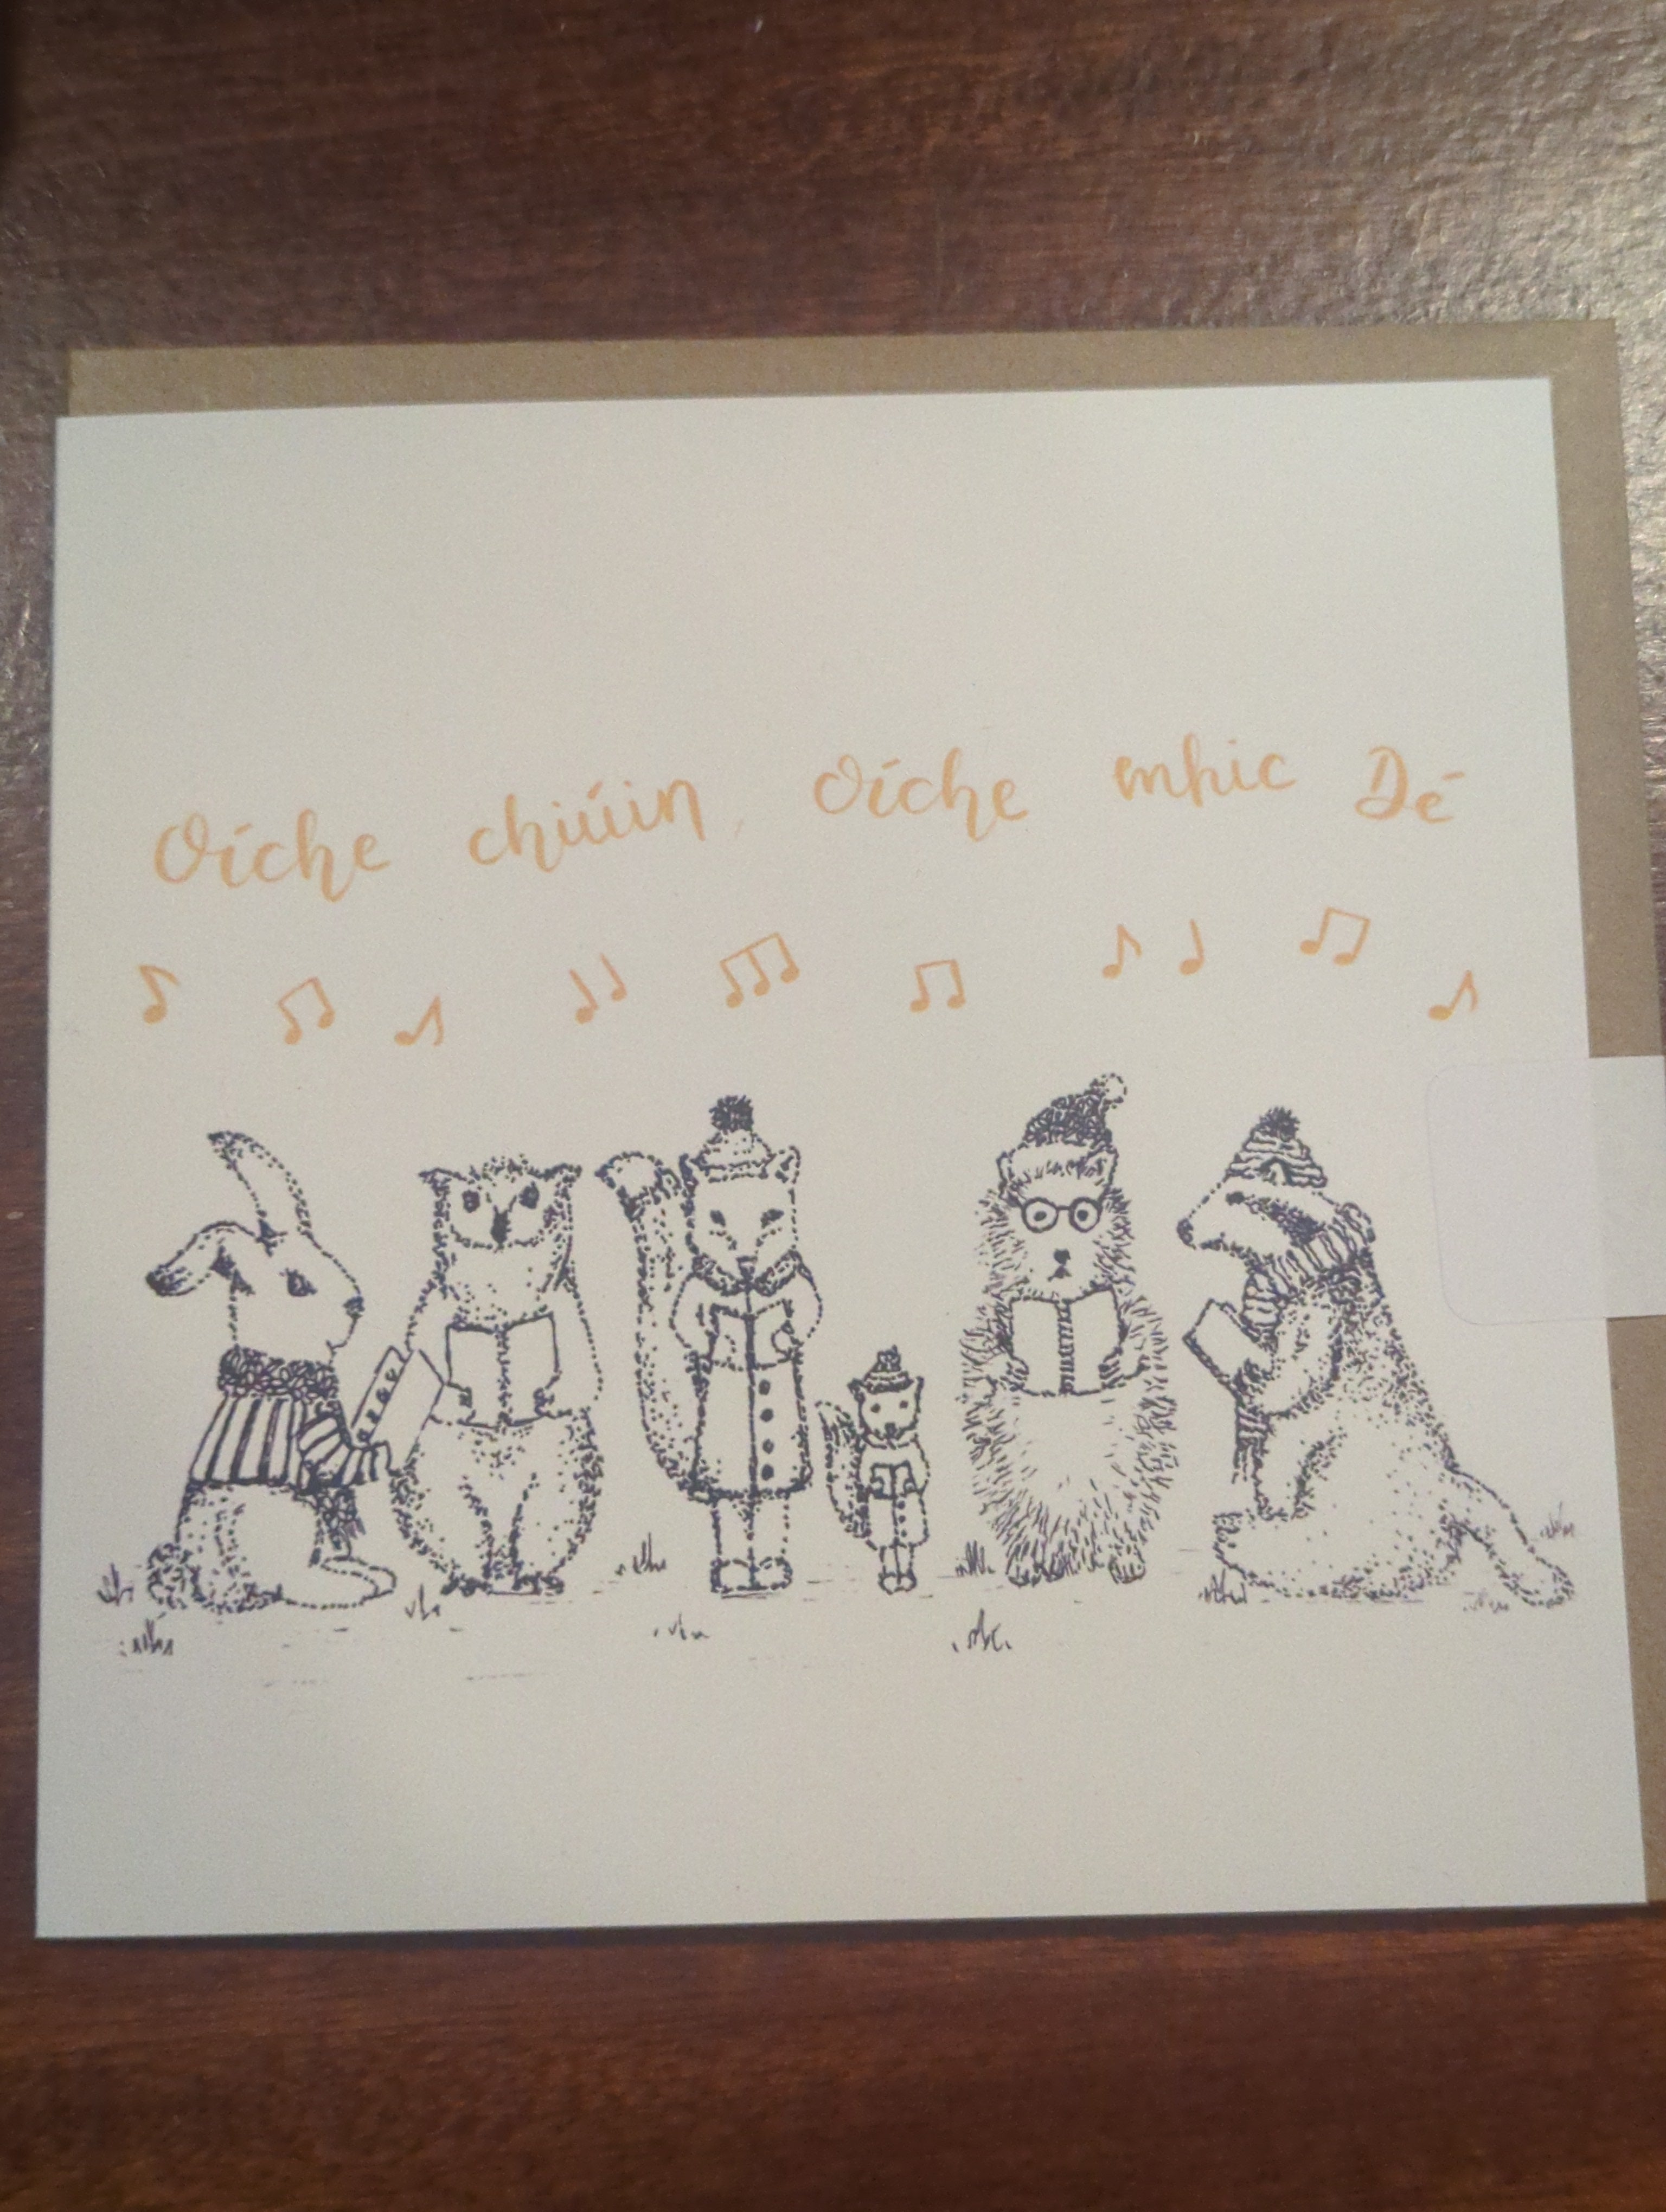 Oíche chiúin, Oíche mhic Dé